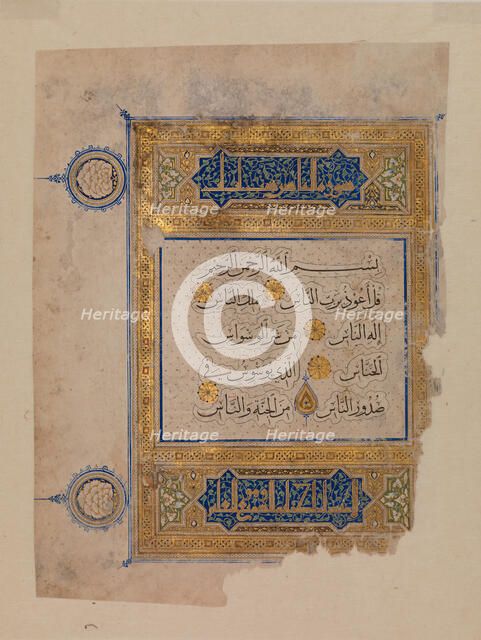 سورة الناس
بسم الله الرحمن الرحيم
قل أعوذ برب الناس ملك الناس
إله الناس من شر الوسواس
الخناس الذي يوسوس في
صدور الناس من الجنة والناس
Heritage Heritage
Heritage Heritage Heritage
Heritage Heritage
Heritage Heritage Heritage
©